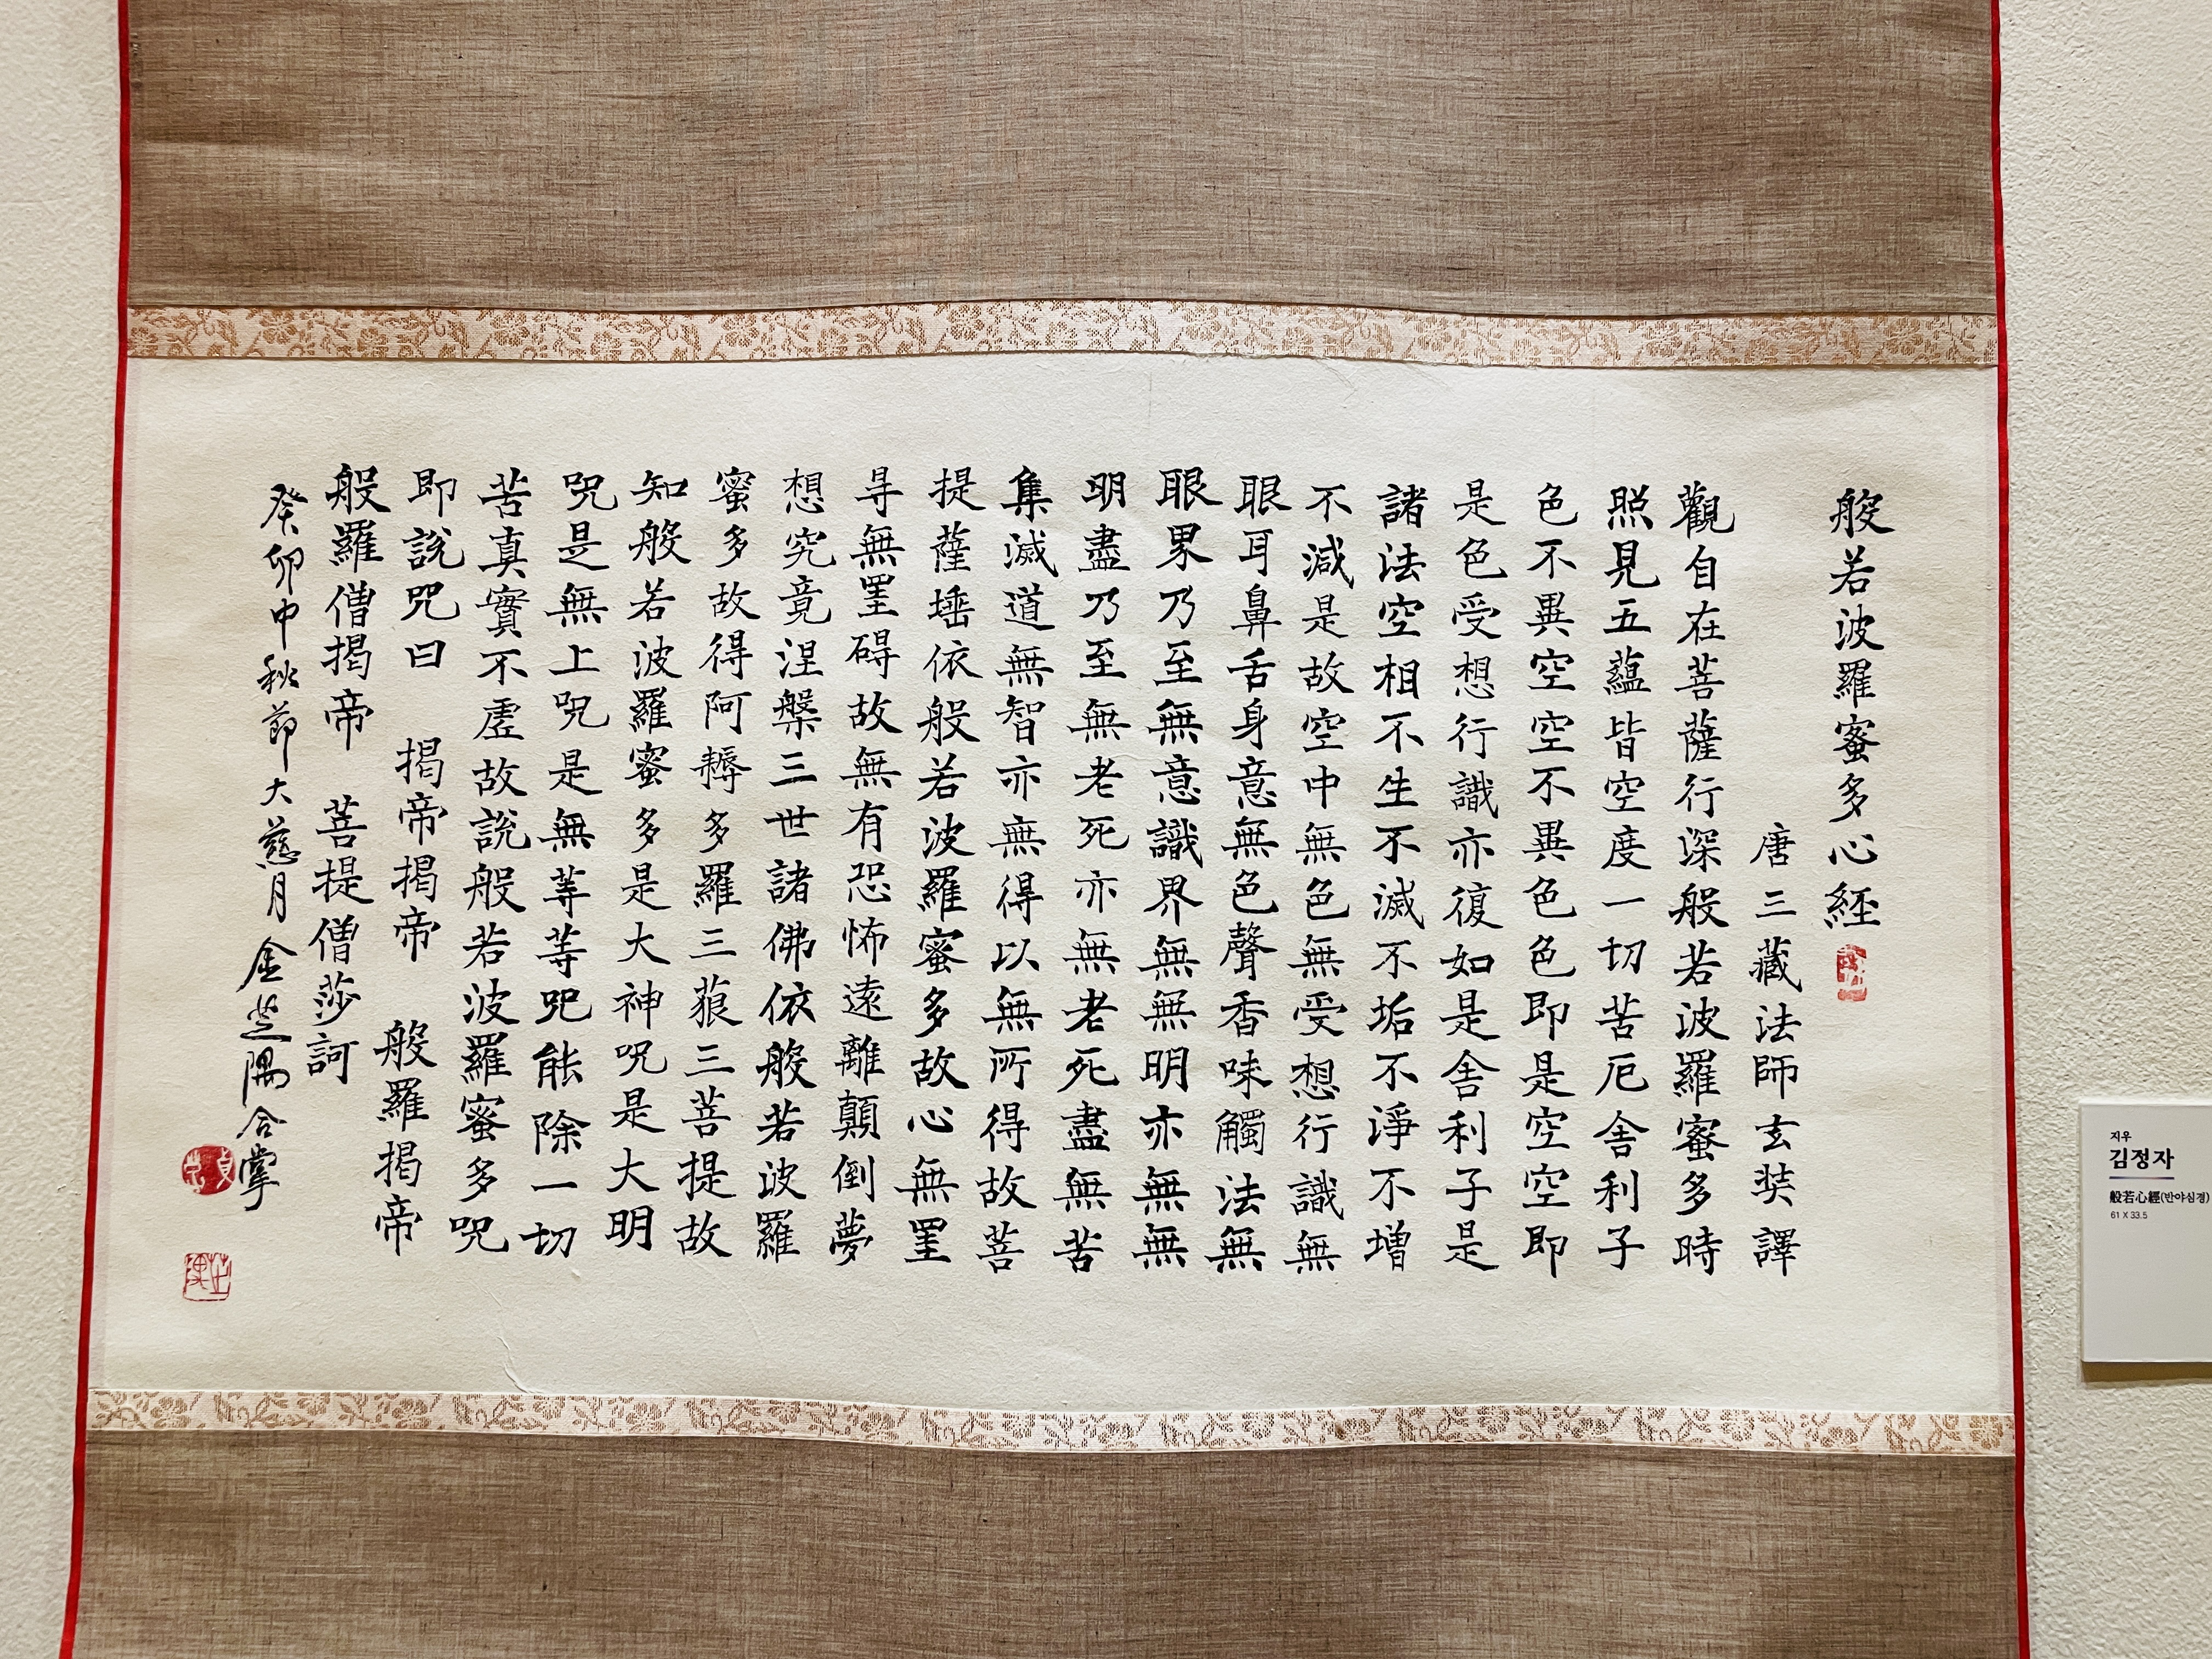 般若波羅蜜多心經
唐三藏法師玄奘譯
觀自在菩薩行深般若波羅蜜多時
照見五蘊皆空度一切苦厄舍利子
色不異空空不異色色即是空空即
是色受想行識亦復如是舍利子是
諸法空相不生不滅不垢不淨不增
不減是故空中無色無受想行識無
眼耳鼻舌身意無色聲香味觸法無
眼界乃至無意識界無無明亦無無
明盡乃至無老死亦無老死盡無苦
集滅道無智亦無得以無所得故菩
提薩埵依般若波羅蜜多故心無罣
㝵無罣碍故無有恐怖遠離顛倒夢
想究竟涅槃三世諸佛依般若波羅
蜜多故得阿耨多羅三藐三菩提故
知般若波羅蜜多是大神呪是大明
呪是無上呪是無等等呪能除一切
苦真實不虛故說般若波羅蜜多呪
即說呪曰 揭帝揭帝 般羅揭帝
般羅僧揭帝 菩提僧莎訶
癸卯中秋節大慈月金芝隅合掌
지우
김정자
般若心經(반야심경)
61 X 33.5